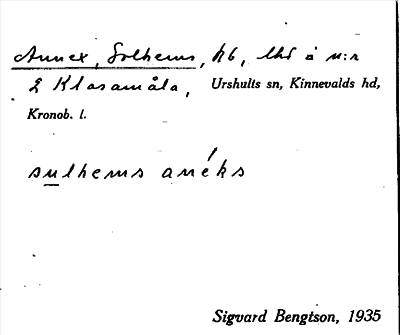 Annex, Solhems, hb, lht å n:r
2 Klasamåla, Urshults sn, Kinnevalds hd,
Kronob. l.
sulhems anéks
Sigvard Bengtson, 1935